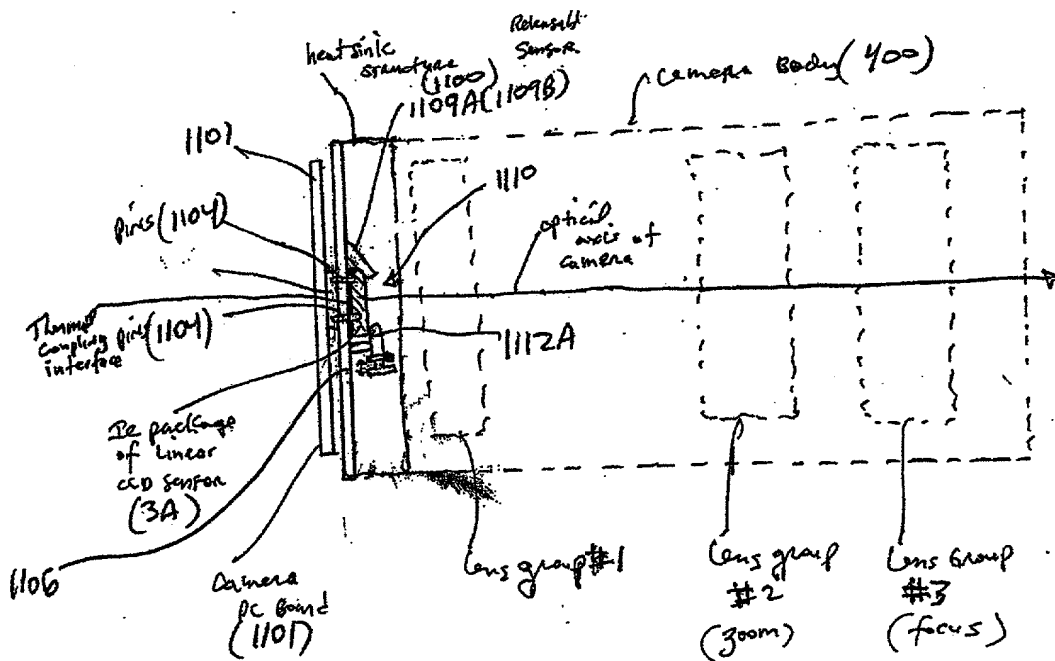 heatsink
structure
(1100)
Releasable
Sensor
1109A(1109B)
camera Body(400)
1107
1110
pins(1104)
optical
axis of
camera
Thermal
coupling pins(1104)
interface
1112A
IC package
of Linear
CCD Sensor
(3A)
1106
camera
PC Board
(1101)
Lens group#1
Lens group
#2
(zoom)
Lens Group
#3
(focus)